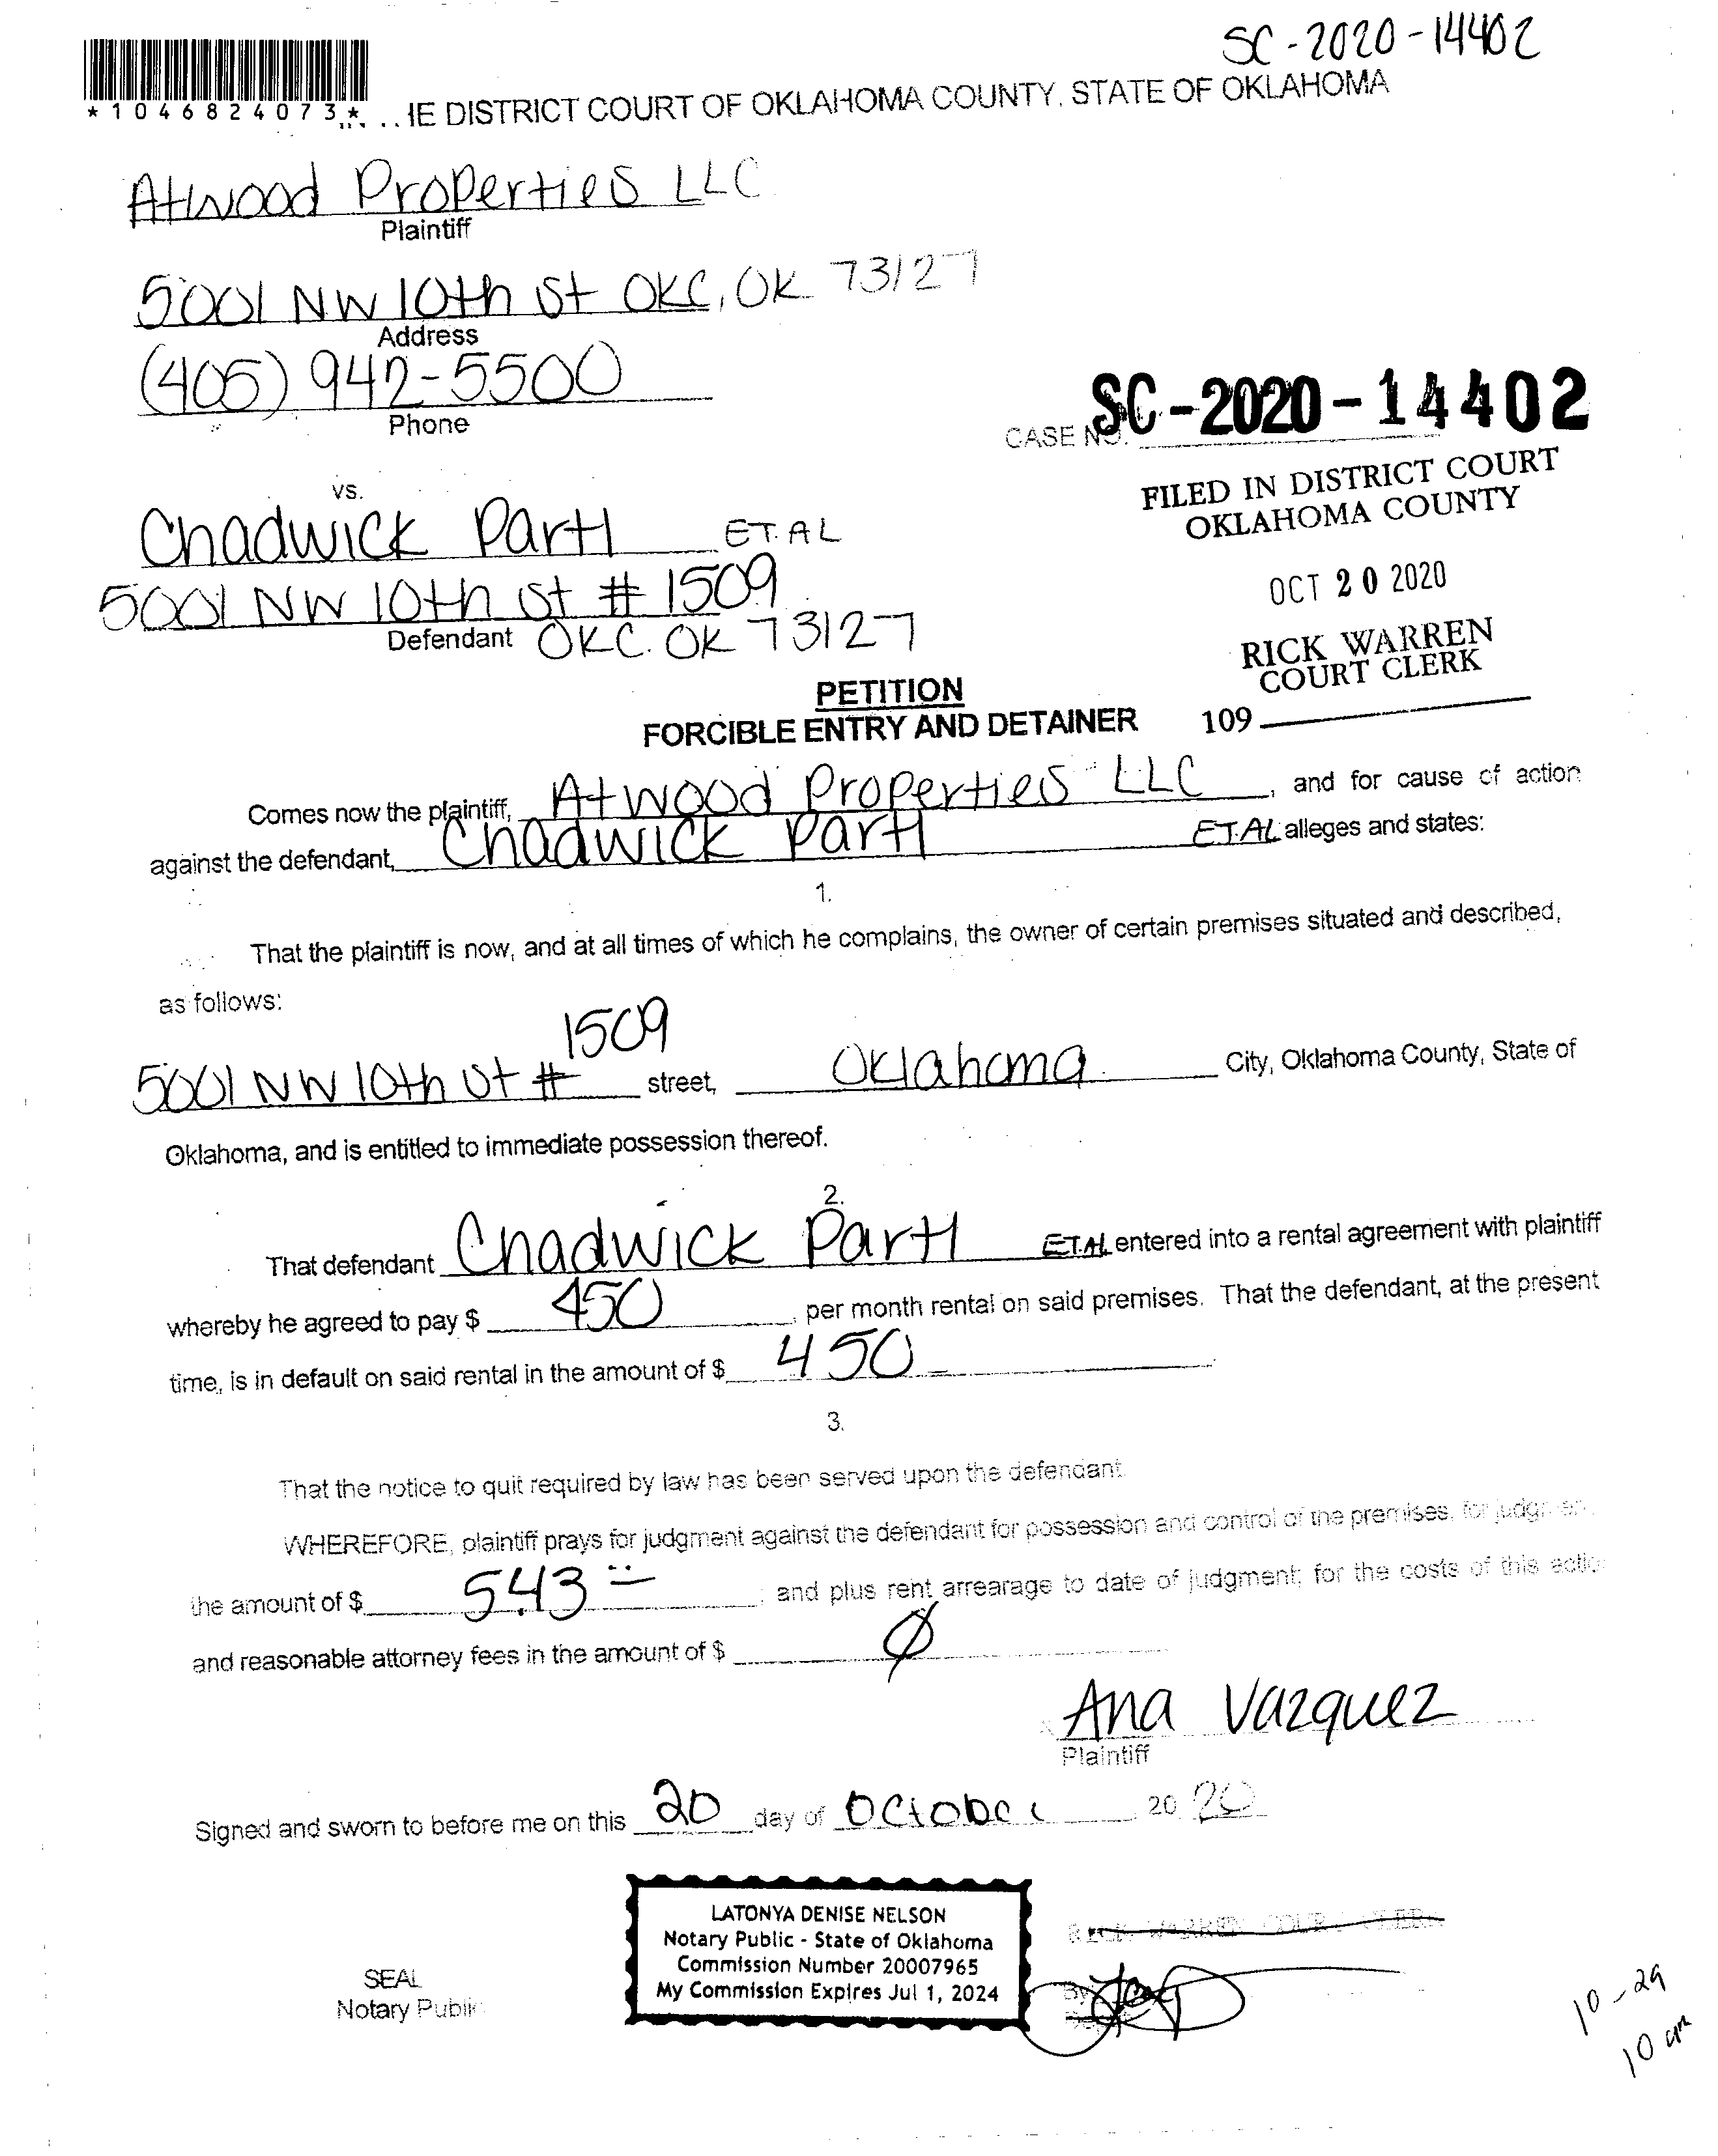 SC-2020-14402
*1046824073*
...IE DISTRICT COURT OF OKLAHOMA COUNTY, STATE OF OKLAHOMA
Atwood Properties LLC
Plaintiff
5001 NW 10th St OKC, OK 73127
Address
(405) 942-5500
Phone
CASE NO. SC-2020-14402
FILED IN DISTRICT COURT
OKLAHOMA COUNTY
OCT 20 2020
RICK WARREN
COURT CLERK
109
vs.
Chadwick Partl ET.AL
5001 NW 10th St # 1509
Defendant OKC. OK 73127
PETITION
FORCIBLE ENTRY AND DETAINER
Comes now the plaintiff, Atwood Properties LLC, and for cause of action
against the defendant, Chadwick Partl ET.AL alleges and states:
1.
That the plaintiff is now, and at all times of which he complains, the owner of certain premises situated and described,
as follows:
1509
5001 NW 10th St # street, Oklahoma City, Oklahoma County, State of
Oklahoma, and is entitled to immediate possession thereof.
2.
That defendant Chadwick Partl ET.AL entered into a rental agreement with plaintiff
whereby he agreed to pay $ 450, per month rental on said premises. That the defendant, at the present
time, is in default on said rental in the amount of $ 450
3.
That the notice to quit required by law has been served upon the defendant.
WHEREFORE, plaintiff prays for judgment against the defendant for possession and control of the premises, for
the amount of $ 543 and plus rent arrearage to date of judgment; for the costs of this
and reasonable attorney fees in the amount of $ Ø
Ana Vazquez
Plaintiff
Signed and sworn to before me on this 20 day of October 20 20
LATONYA DENISE NELSON
Notary Public - State of Oklahoma
Commission Number 20007965
My Commission Expires Jul 1, 2024
RICK WARREN
By
SEAL
Notary Public
10-29
10 am